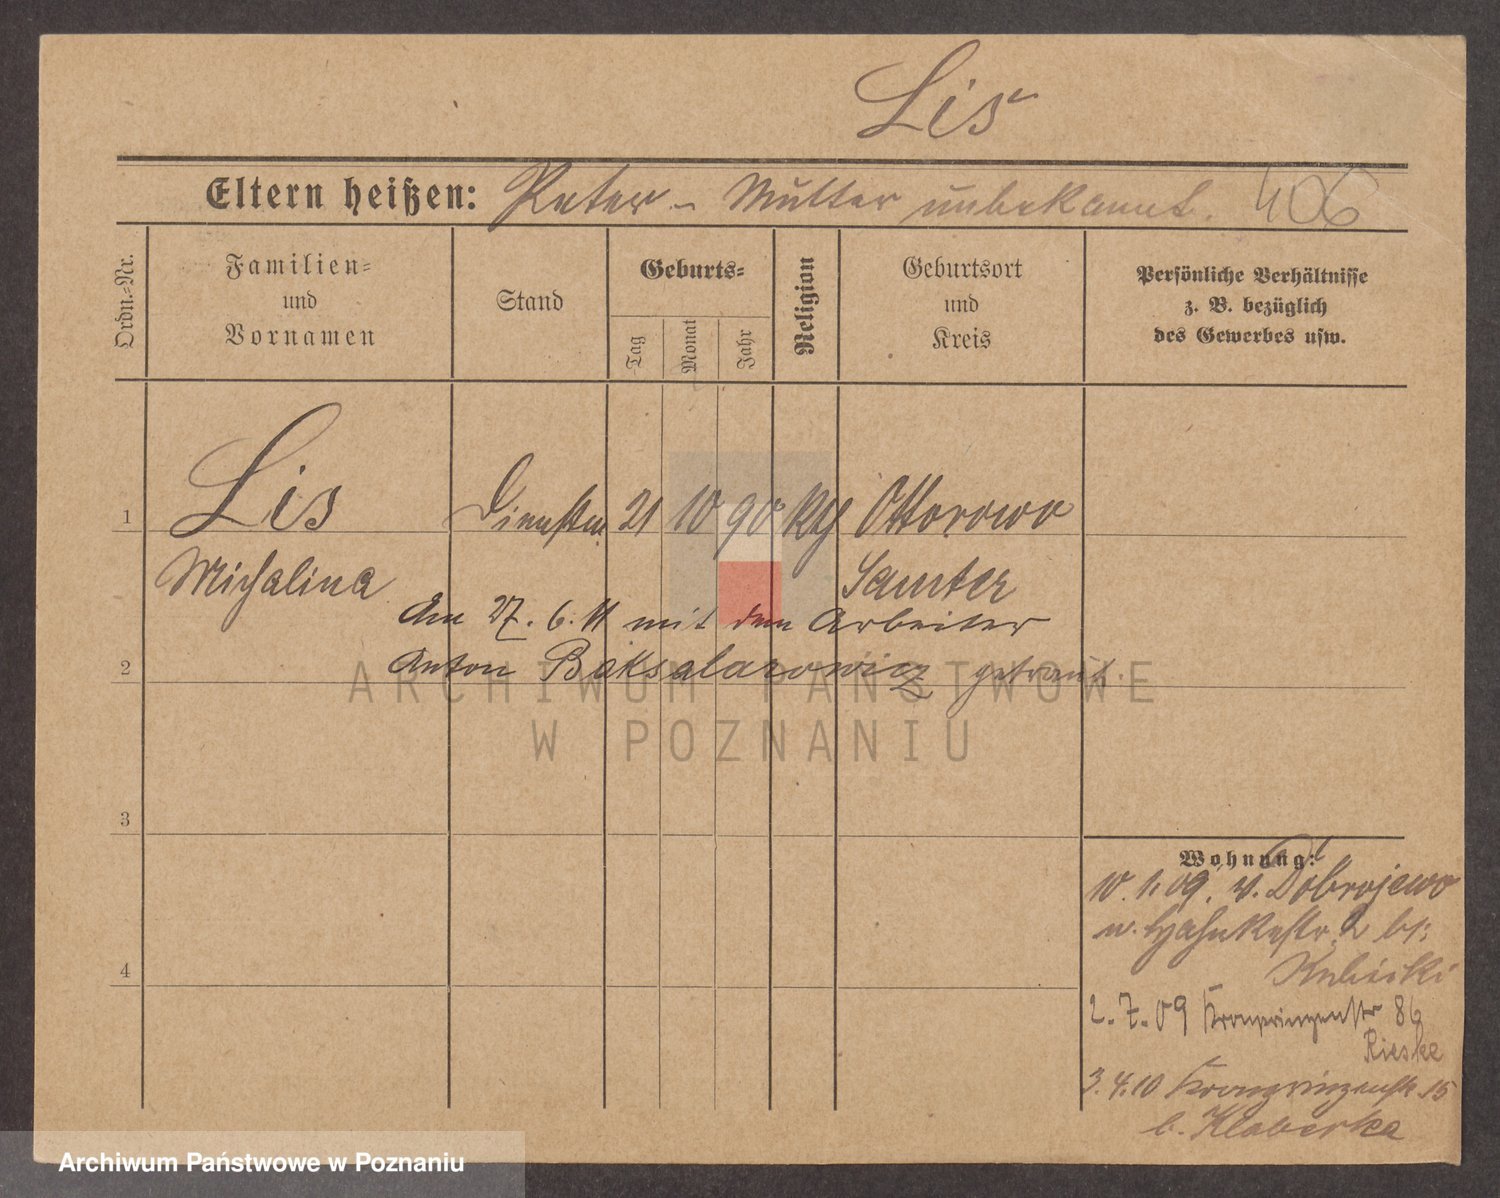 Lis
Eltern heißen: Peter - Mutter unbekannt. 406
Ordn.-Nr.
Familien-
und
Vornamen
Stand
Geburts-
Tag
Monat
Jahr
Religion
Geburtsort
und
Kreis
Persönliche Verhältnisse
z. B. bezüglich
des Gewerbes usw.
1 Lis Dienstm. 21 10 90 kth Ottorowo
Michalina Samter
Am 27. 6. 11 mit dem Arbeiter
2 Anton Baksalarowicz getraut.
3
Wohnung:
10. 1. 09. v. Dobrojewo
n. Hahnkestr. 2 bei
Kubicki
4
2. 7. 09 Kronprinzenstr 86
Rieske
3. 4. 10 Kronprinzenstr. 15
b. Klaberka
ARCHIWUM PAŃSTWOWE
W POZNANIU
Archiwum Państwowe w Poznaniu